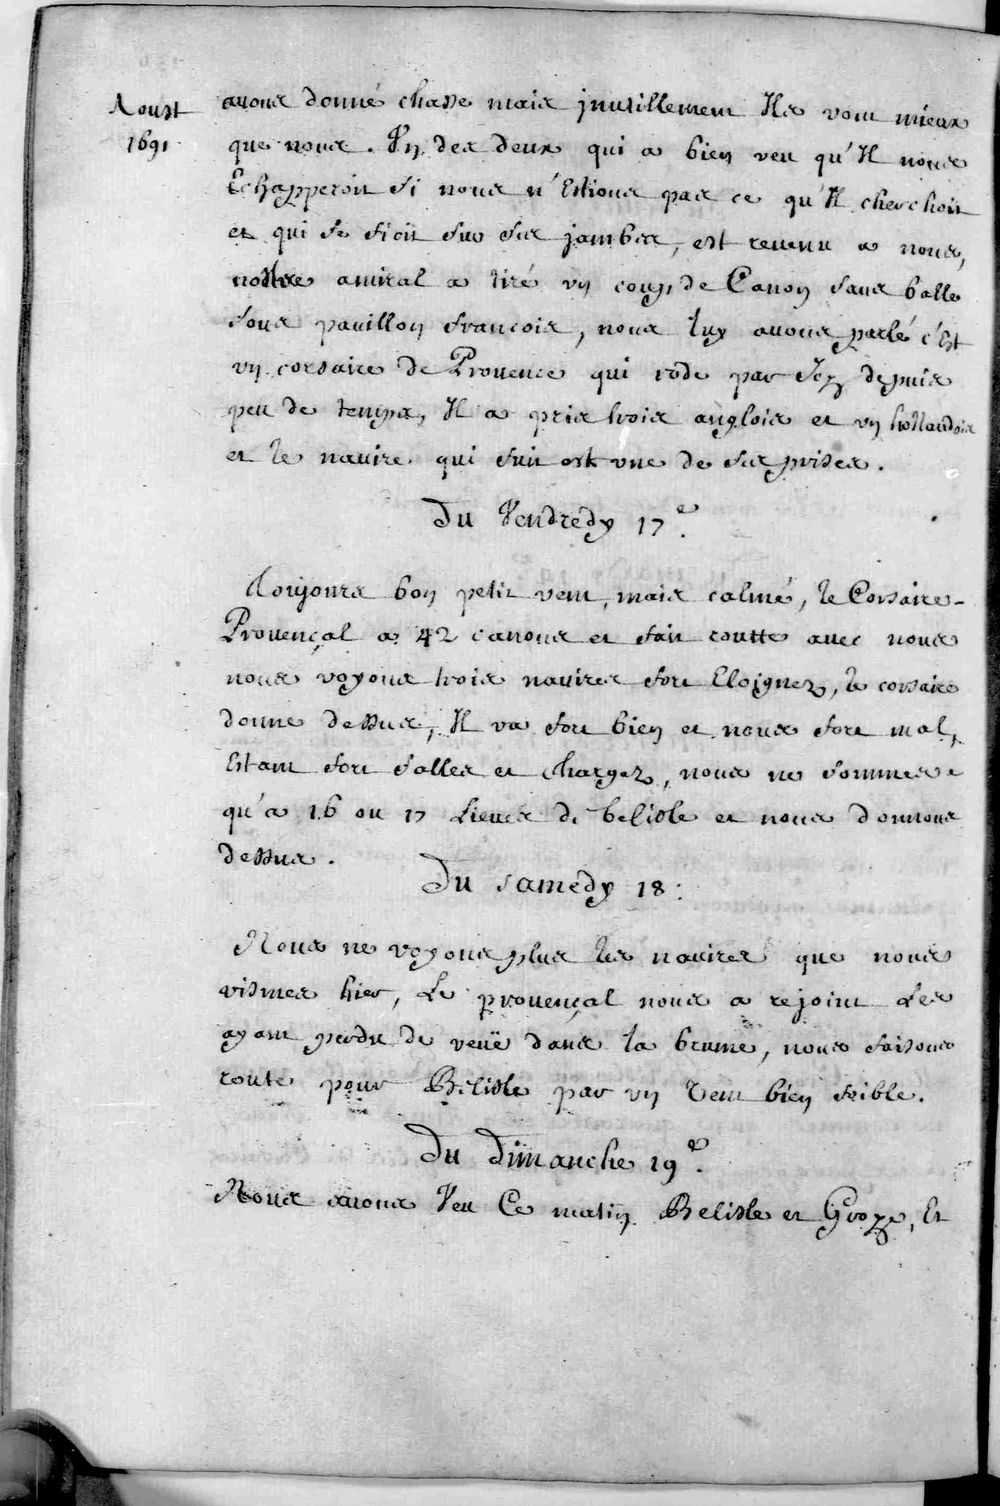 Aoust
1691
auons donné chasse mais jnutillement Ils vont mieux
que nous. Vn des deux qui a bien veu qu'Il nous
Echapperoit si nous n'Estions pas ce qu'Il cherchoit
et qui se fioit sur ses jambes, est reuenu a nous,
nostre amiral a tiré vn coup de Canon sans balle
sous pauillon francois, nous luy auons parlé c'Est
vn corsaire de Prouence qui rode par Icy depuis
peu de temps, Il a pris trois anglois et vn hollandois
et le nauire qui suit est vne de ses prises.
Du Vendredy 17e.
Toujours bon petit vent, mais calmé, le Corsaire
Prouençal a 42 canons et fait routte auec nous
nous voyons trois nauires fort Eloignez, le corsaire
donne dessus, Il va fort bien et nous fort mal,
Estant fort salles et chargez, nous ne sommes
qu'a 16 ou 17 Lieues de belisle et nous donnons
dessus.
Du samedy 18:
Nous ne voyons plus les nauires que nous
vismes hier, Le prouençal nous a rejoint Les
ayant perdu de veuë dans la brume, nous faisons
route pour Belisle par vn vent bien foible.
Du Dimanche 19e.
Nous auons Veu Ce matin Belisle et Groye, Et